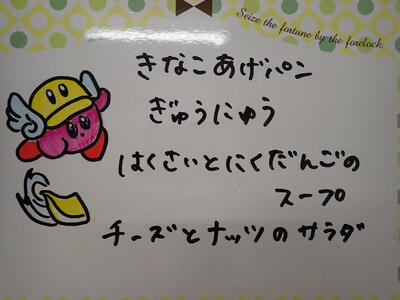 Seize the fortune by the forelock.
きなこあげパン
ぎゅうにゅう
はくさいとにくだんごの
スープ
チーズとナッツのサラダ